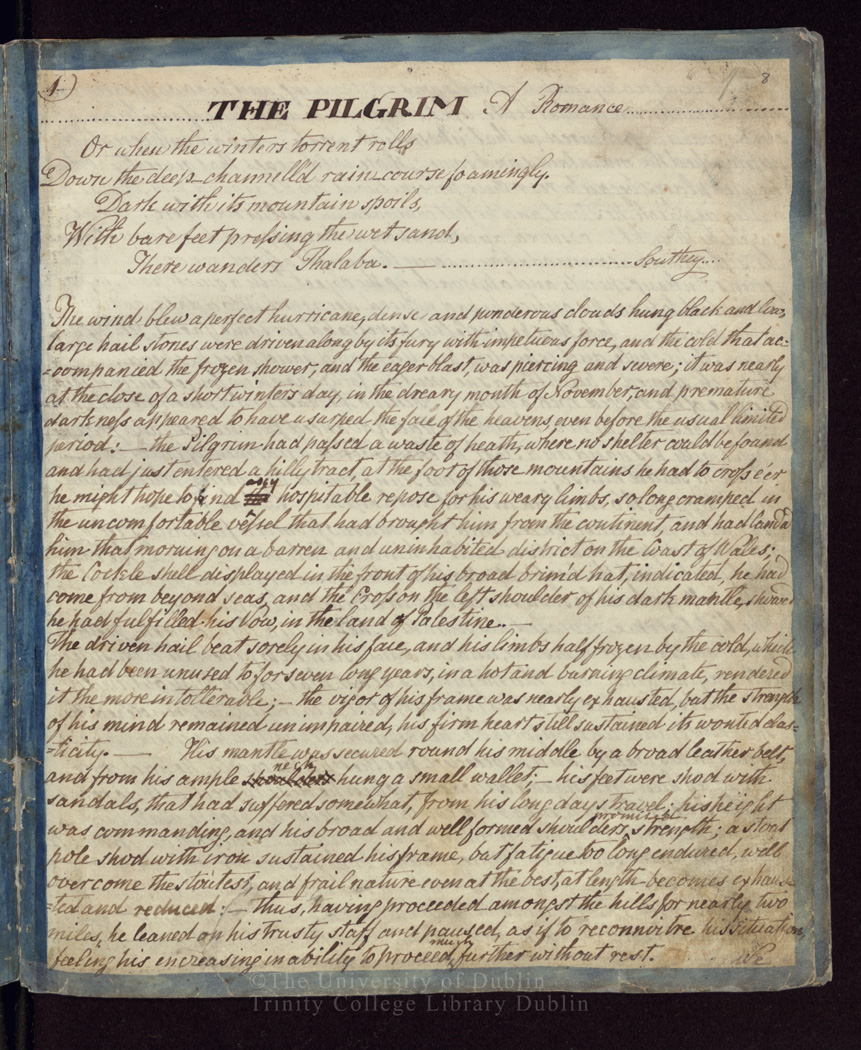 1
8
THE PILGRIM A Romance
Or when the winters torrent rolls
Down the deep-channell'd rain-course foamingly.
Dark with its mountain spoils,
With bare feet pressing the wet sand,
There wanders Thalaba. — Southey
The wind blew a perfect hurricane, dense and punderous clouds hung black and low,
large hail stones were driven along by its fury with impetuous force, and the cold that ac=
=companied the frozen shower, and the eager blast, was piercing and severe; it was nearly
at the close of a short winters day, in the dreary month of November, and premature
darkness appeared to have usurped the face of the heavens even before the usual limited
period: — the Pilgrim had passed a waste of heath, where no shelter could be found
and had just entered a hilly tract, at the foot of those mountains he had to cross e'er
he might hope to find any hospitable repose for his weary limbs, so long cramped in
the uncomfortable vessel that had brought him from the continent, and had land'd
him that morning on a barren and uninhabited district on the Coast of Wales;
the Cockle shell displayed in the front of his broad brim'd hat, indicated, he had
come from beyond seas, and the Cross on the left shoulder of his dark mantle, shewed
he had fulfilled his Vow, in the land of Palestine. —
The driven hail beat sorely in his face, and his limbs half frozen by the cold, which
he had been unused to for seven long years, in a hot and burning climate, rendered
it the more intollerable; — the vigor of his frame was nearly exhausted, but the strength
of his mind remained unimpaired, his firm heart still sustained its wonted elas=
=ticity. — His mantle was secured round his middle by a broad leather belt,
and from his ample shoulders neck hung a small wallet; — his feet were shod with
sandals, that had suffered somewhat, from his long days travel; his height
was commanding, and his broad and well formed shoulders, promised strength; a stout
pole shod with iron sustained his frame, but fatigue too long endured, will
overcome the stoutest, and frail nature even at the best, at length becomes exhaus=
=ted and reduced: — thus, having proceeded amongst the hills for nearly two
miles, he leaned on his trusty staff and paused, as if to reconnoitre his situation,
feeling his encreasing inability to proceed much further without rest.
He
©The University of Dublin
Trinity College Library Dublin